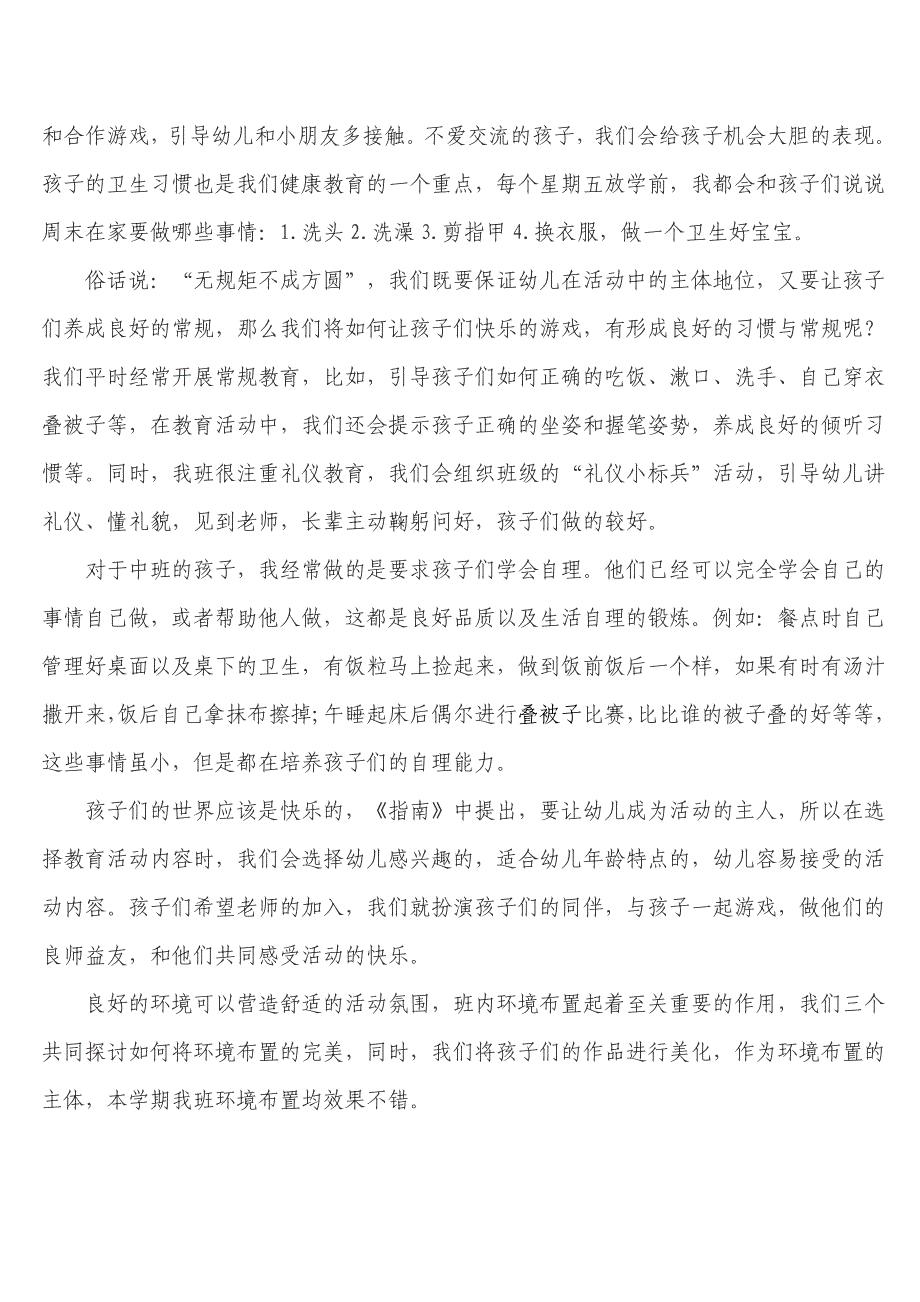 和合作游戏，引导幼儿和小朋友多接触。不爱交流的孩子，我们会给孩子机会大胆的表现。
孩子的卫生习惯也是我们健康教育的一个重点，每个星期五放学前，我都会和孩子们说说
周末在家要做哪些事情：1.洗头2.洗澡3.剪指甲4.换衣服，做一个卫生好宝宝。
俗话说：“无规矩不成方圆”，我们既要保证幼儿在活动中的主体地位，又要让孩子
们养成良好的常规，那么我们将如何让孩子们快乐的游戏，有形成良好的习惯与常规呢？
我们平时经常开展常规教育，比如，引导孩子们如何正确的吃饭、漱口、洗手、自己穿衣
叠被子等，在教育活动中，我们还会提示孩子正确的坐姿和握笔姿势，养成良好的倾听习
惯等。同时，我班很注重礼仪教育，我们会组织班级的“礼仪小标兵”活动，引导幼儿讲
礼仪、懂礼貌，见到老师，长辈主动鞠躬问好，孩子们做的较好。
对于中班的孩子，我经常做的是要求孩子们学会自理。他们已经可以完全学会自己的
事情自己做，或者帮助他人做，这都是良好品质以及生活自理的锻炼。例如：餐点时自己
管理好桌面以及桌下的卫生，有饭粒马上捡起来，做到饭前饭后一个样，如果有时有汤汁
撒开来，饭后自己拿抹布擦掉；午睡起床后偶尔进行叠被子比赛，比比谁的被子叠的好等等，
这些事情虽小，但是都在培养孩子们的自理能力。
孩子们的世界应该是快乐的，《指南》中提出，要让幼儿成为活动的主人，所以在选
择教育活动内容时，我们会选择幼儿感兴趣的，适合幼儿年龄特点的，幼儿容易接受的活
动内容。孩子们希望老师的加入，我们就扮演孩子们的同伴，与孩子一起游戏，做他们的
良师益友，和他们共同感受活动的快乐。
良好的环境可以营造舒适的活动氛围，班内环境布置起着至关重要的作用，我们三个
共同探讨如何将环境布置的完美，同时，我们将孩子们的作品进行美化，作为环境布置的
主体，本学期我班环境布置均效果不错。